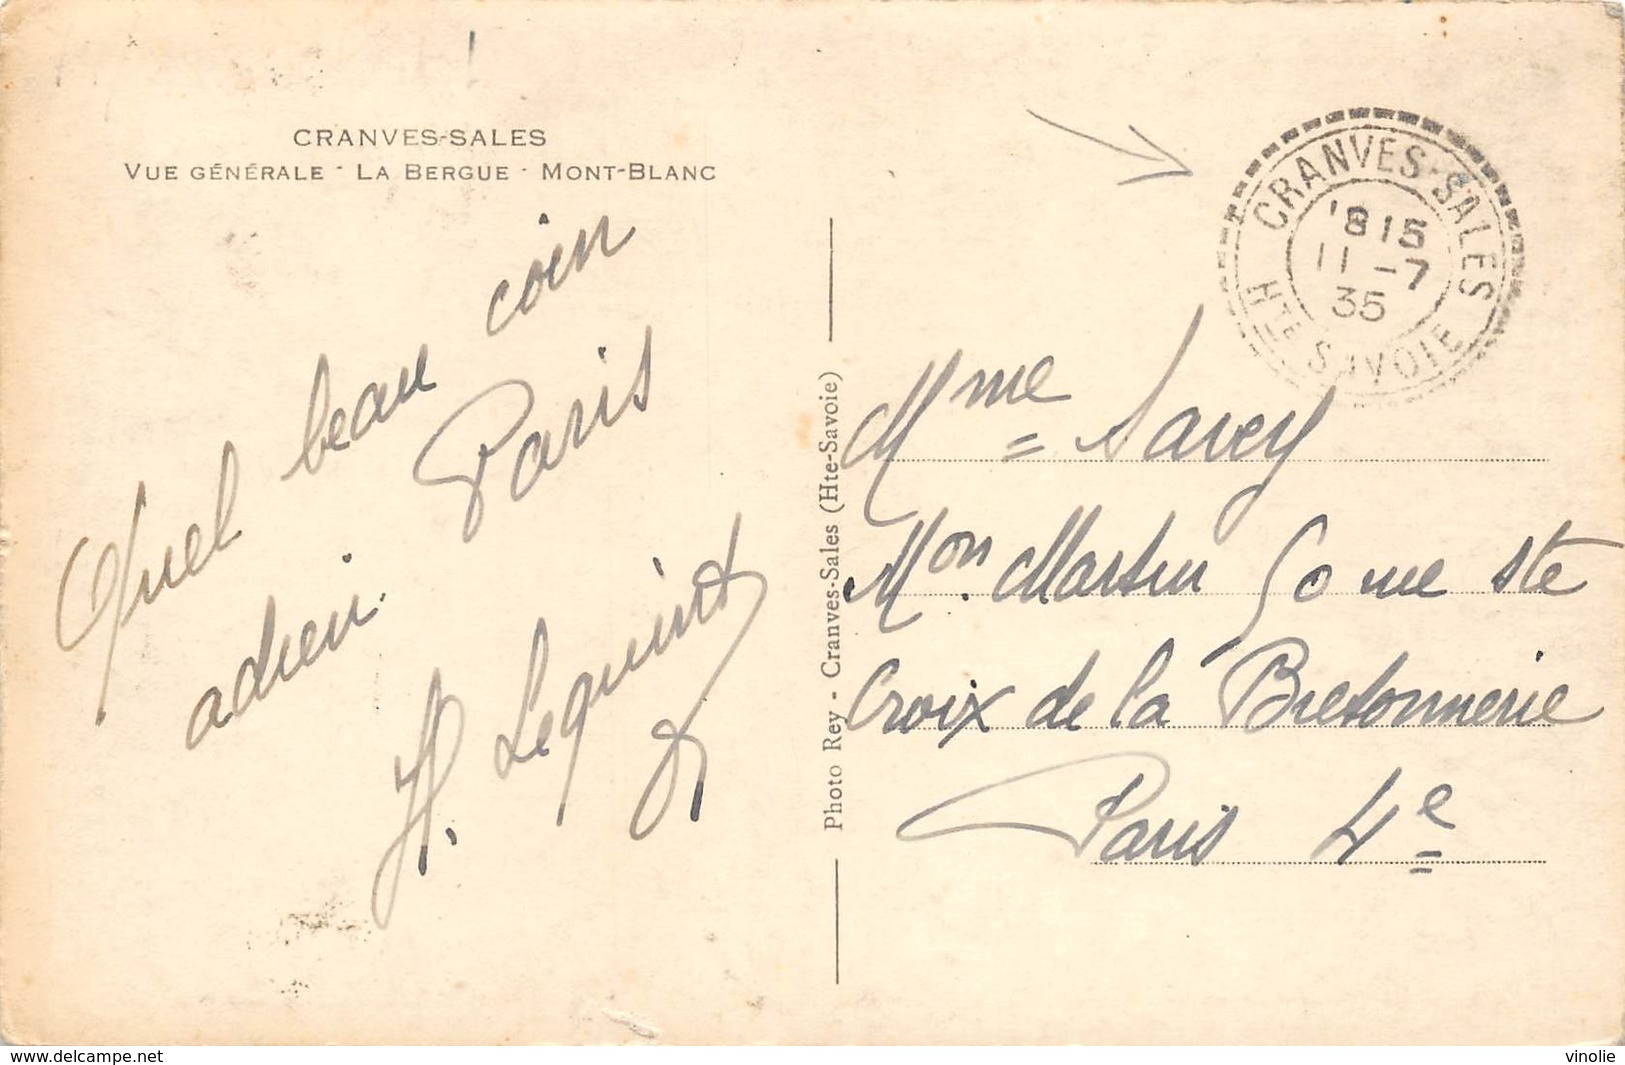 CRANVES-SALES
VUE GÉNÉRALE - LA BERGUE - MONT-BLANC
Quel beau coin
adieu Paris
H. Lequint
Photo Rey - Cranves-Sales (Hte-Savoie)
CRANVES-SALES
815
11-7
35
HTE SAVOIE
Mme Savey
Mon. Martin 50 me ste
Croix de la Bretonnerie
Paris 4e
www.delcampe.net
vinolie